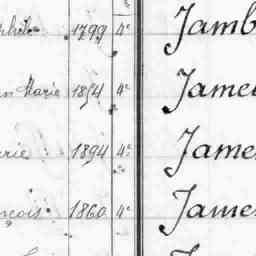 1799 4ᵉ Jamb
n Marie 1854 4ᵉ James
rie 1894 4ᵉ Jame
çois 1860 4ᵉ James